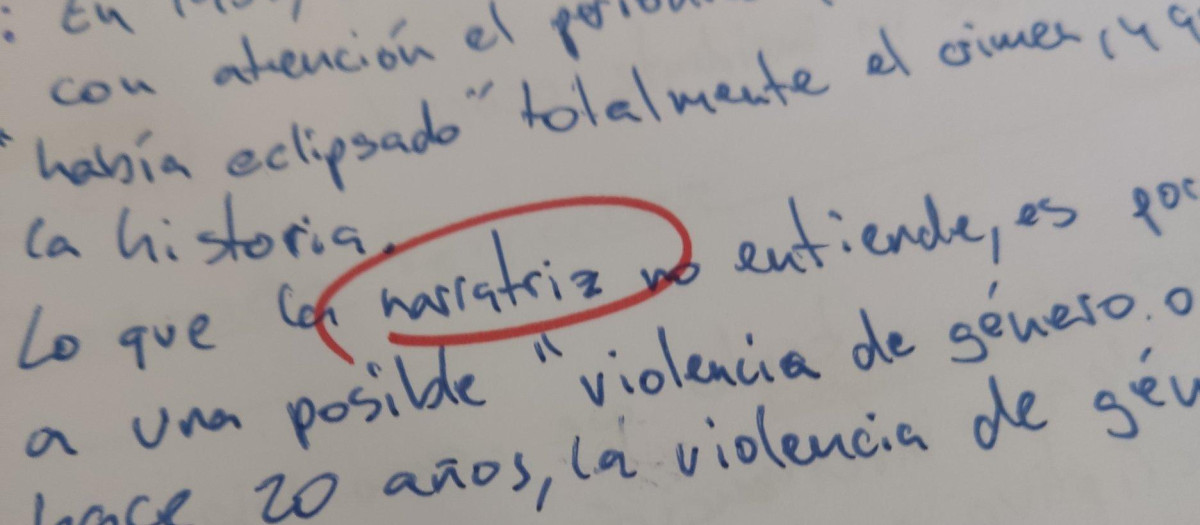 : En
con atención el
"había eclipsado" totalmente el crimen, y
la historia.
Lo que la narratriz no entiende, es
a una posible "violencia de género. o
hace 20 años, la violencia de